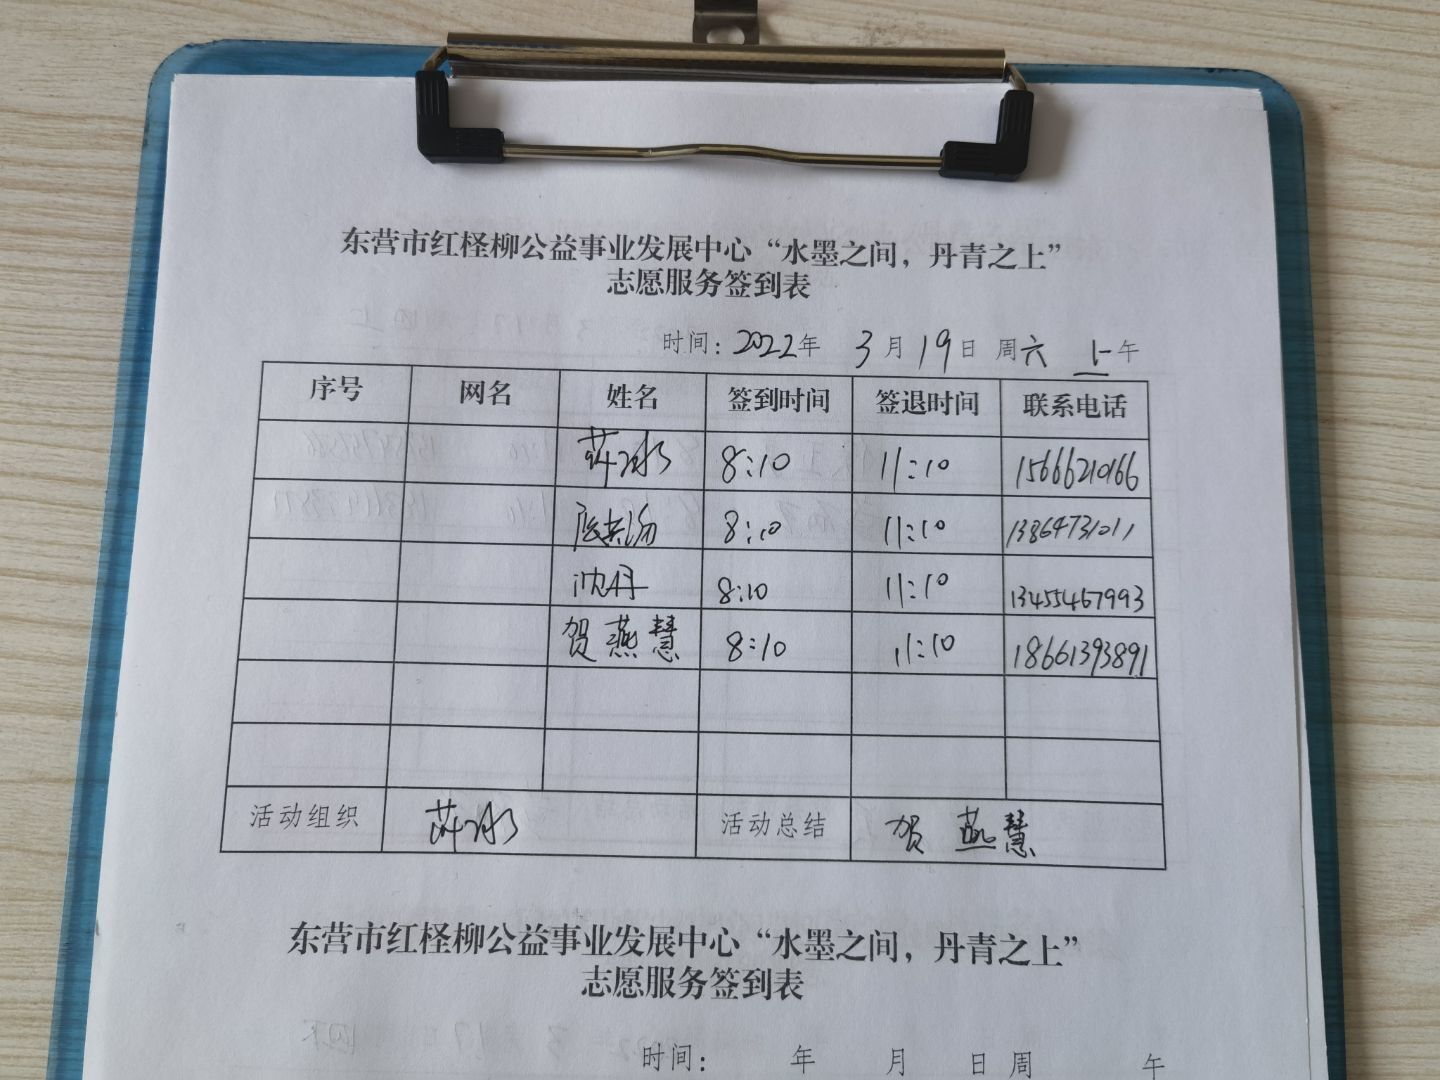 东营市红柽柳公益事业发展中心“水墨之间，丹青之上”
志愿服务签到表
时间：2022年 3月19日 周六 上午
序号 网名 姓名 签到时间 签退时间 联系电话
8:10 11:10 15666210166
8:10 11:10 13864731011
沈丹 8:10 11:10 13455467993
贺燕慧 8:10 11:10 18661393891
活动组织 活动总结 贺燕慧
东营市红柽柳公益事业发展中心“水墨之间，丹青之上”
志愿服务签到表
时间： 年 月 日 周 午